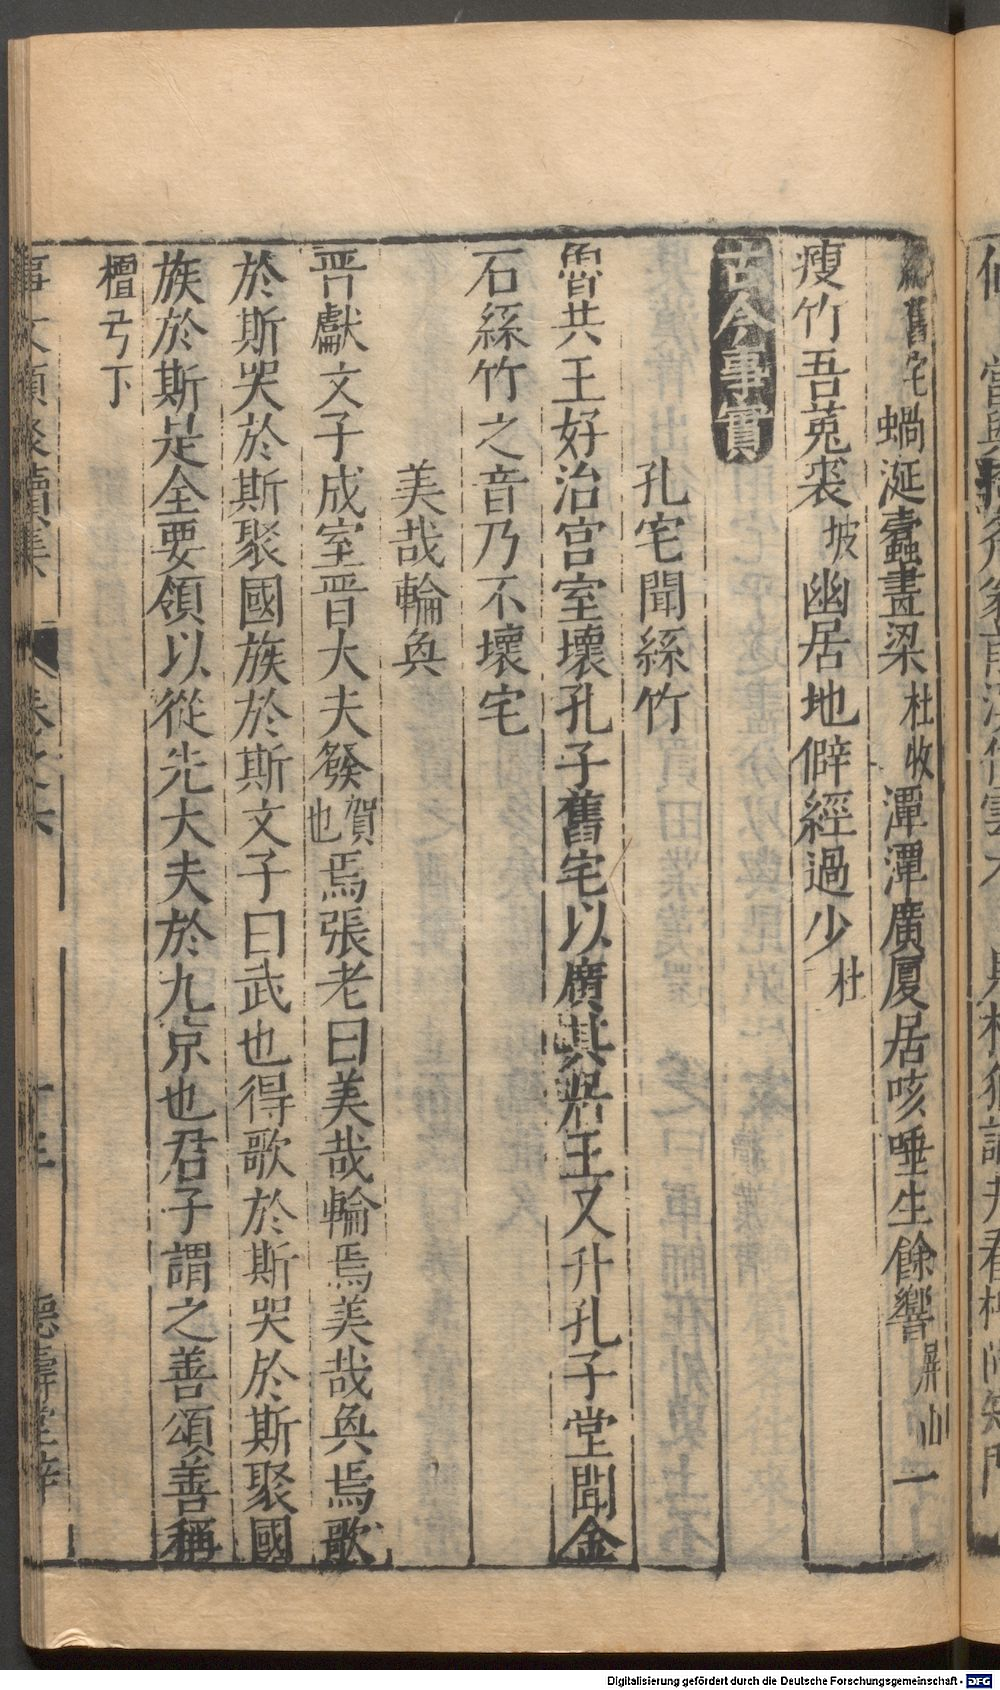 舊宅蝸涎蠹畫梁杜收潭潭廣厦居咳唾生餘響屏山一
瘦竹吾菟裘坡幽居地僻經過少杜
古今事實
孔宅聞絲竹
魯共王好治宮室壞孔子舊宅以廣其居王又升孔子堂聞金
石絲竹之音乃不壞宅
美哉輪奐
晉獻文子成室晉大夫發賀也焉張老曰美哉輪焉美哉奐焉歌
於斯哭於斯聚國族於斯文子曰武也得歌於斯哭於斯聚國
族於斯是全要領以從先大夫於九京也君子謂之善頌善稱
檀弓下
事文類聚續集 卷之六 十三 德壽堂梓
Digitalisierung gefördert durch die Deutsche Forschungsgemeinschaft - DFG